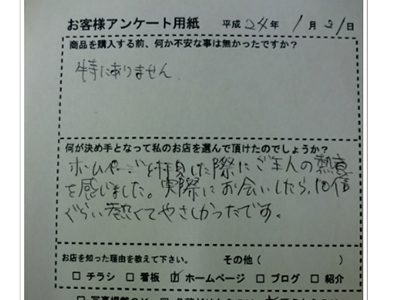 お客様アンケート用紙 平成 24年 1月21日
商品を購入する前、何か不安な事は無かったですか?
特にありません
何が決め手となって私のお店を選んで頂けたのでしょうか?
ホームページを拝見した際にご主人の熱意
を感じました。実際にお会いしたら、10倍
ぐらい熱くてやさしかったです。
お店を知った理由を教えて下さい。 その他(
□ チラシ □ 看板 □ ホームページ □ ブログ □ 紹介